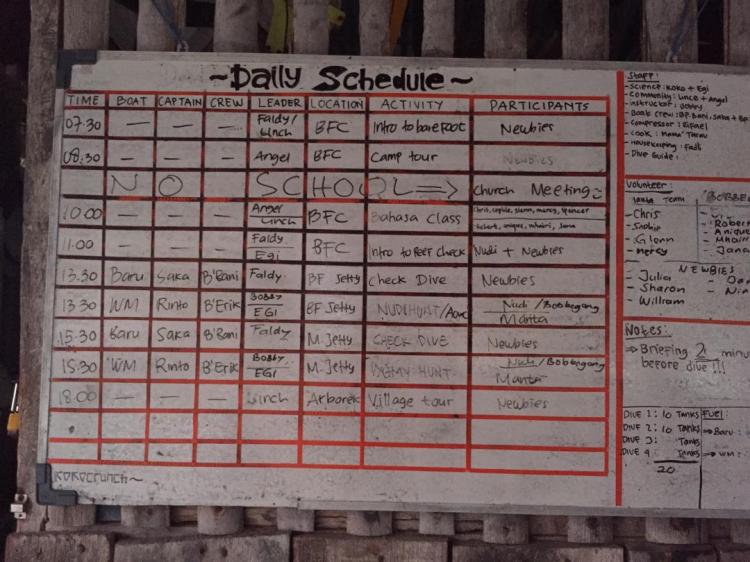 ~Daily Schedule~
TIME BOAT CAPTAIN CREW LEADER LOCATION ACTIVITY PARTICIPANTS
07.30 — — — Faldy/ Linch BFC Intro to bareFoot Newbies
08.30 — — — Angel BFC Camp tour Newbies
NO SCHOOL => Church Meeting
10.00 — — — Angel Linch BFC Bahasa Class
11.00 — — — Faldy Egi BFC Intro to reef check Nudi + Newbies
13.30 Baru Saka B'Bani Faldy BF Jetty Check Dive Newbies
13.30 WM Rinto B'Erik Bobby EGI BF Jetty NUDIHUNT/ Nudi/Bobbegong Manta
15.30 Baru Saka B'Bani Faldy M. Jetty CHECK DIVE Newbies
15.30 WM Rinto B'Erik Bobby EGI M. Jetty HUNT Nudi/Bobbegong Manta
18.00 — — — Linch Arborek Village tour Newbies
KOKOCRUNCH~
Staff:
- Science: Koko + Egi
- Community: Lince + Angel
- Instructor: Bobby
- Boat Crew: BP. Bani, Saka + Bp
- Compressor:
- Cook: Mama
- Housekeeping: Fadli
- Dive Guide:
Volunteer:
TEAM
- Chris
- Sophie
- Glenn
- Mercy
NEWBIES
- Julia
- Sharon
- William
Notes:
=> Briefing 2 minu
before dive !!!
DIVE 1: 10 Tanks
DIVE 2: 10 Tanks
DIVE 3: Tanks
DIVE 4: Tanks
20
Fuel:
→ Baru:
→ WM: